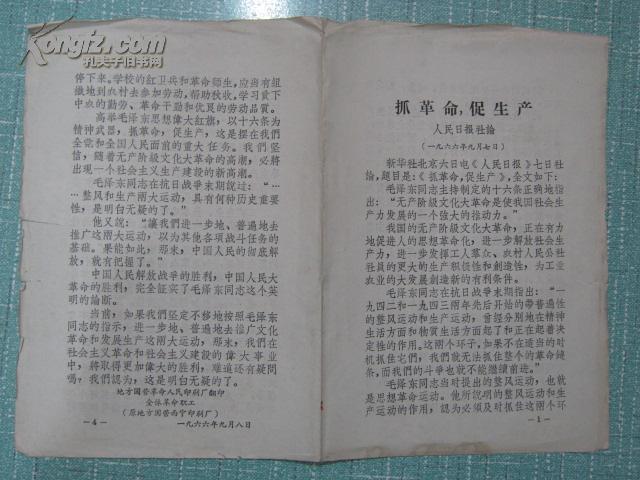 停下来。学校的红卫兵和革命师生，应当有組
織地到农村去参加劳动，帮助秋收，学习貧下
中农的勤劳、革命干劲和优良的劳动品質。
高举毛泽东思想伟大紅旗，以十六条为
精神武器，抓革命，促生产，这是摆在我們
全党和全国人民面前的重大任务。我們坚
信，随着无产阶级文化大革命的高潮，必将
出現一个社会主义生产建設的新高潮。
毛泽东同志在抗日战争末期說过：“…
…整风和生产兩大运动，具有何种历史重要
性，是明白无疑的了。”
他又說：“讓我們进一步地、普遍地去
推广这兩大运动，以为其他各項战斗任务的
基础。果能如此，那末，中国人民的彻底解
放，就有把握了。”
中国人民解放战爭的胜利，中国人民大
革命的胜利，完全征实了毛泽东同志这个英
明的論断。
当前，如果我們坚定不移地按照毛泽东
同志的指示，进一步地、普遍地去推广文化
革命和发展生产这兩大运动，那末，我們在
社会主义革命和社会主义建設的偉大事业
中，將取得更加偉大的胜利，难道还有疑問
嗎？我們認为，这是明白无疑的了。
地方国营革命人民印刷厂翻印
全体革命职工
（原地方国营西宁印刷厂）
—4— 一九六六年九月八日
抓革命，促生产
人民日报社論
（一九六六年九月七日）
新华社北京六日电《人民日报》七日社
論，題目是：《抓革命，促生产》，全文如下：
毛泽东同志主持制定的十六条正确地指
出：“无产阶级文化大革命是使我国社会生
产力发展的一个強大的推动力。”
我国的无产阶级文化大革命，正在有力
地促进人的思想革命化，进一步解放社会生
产力，进一步发揮工人羣众、农村人民公社
社員的更大的生产积极性和創造性，为工业
农业的大发展創造新的有利条件。
毛泽东同志在抗日战争末期指出：“一
九四二和一九四三兩年先后开始的带普遍性
的整风运动和生产运动，曾經分別地在精神
生活方面和物質生活方面起了和正在起着决
定性的作用。这兩个环子，如果不在适当的时
机抓住它們，我們就无法抓住整个的革命鏈
条，而我們的斗爭也就不能继續前进。”
毛泽东同志当时提出的整风运动，也就
是思想革命运动。他所說明的整风运动和生
产运动的作用，認为必須及时抓住这兩个环
—1—
kongfz.com
孔夫子旧书网